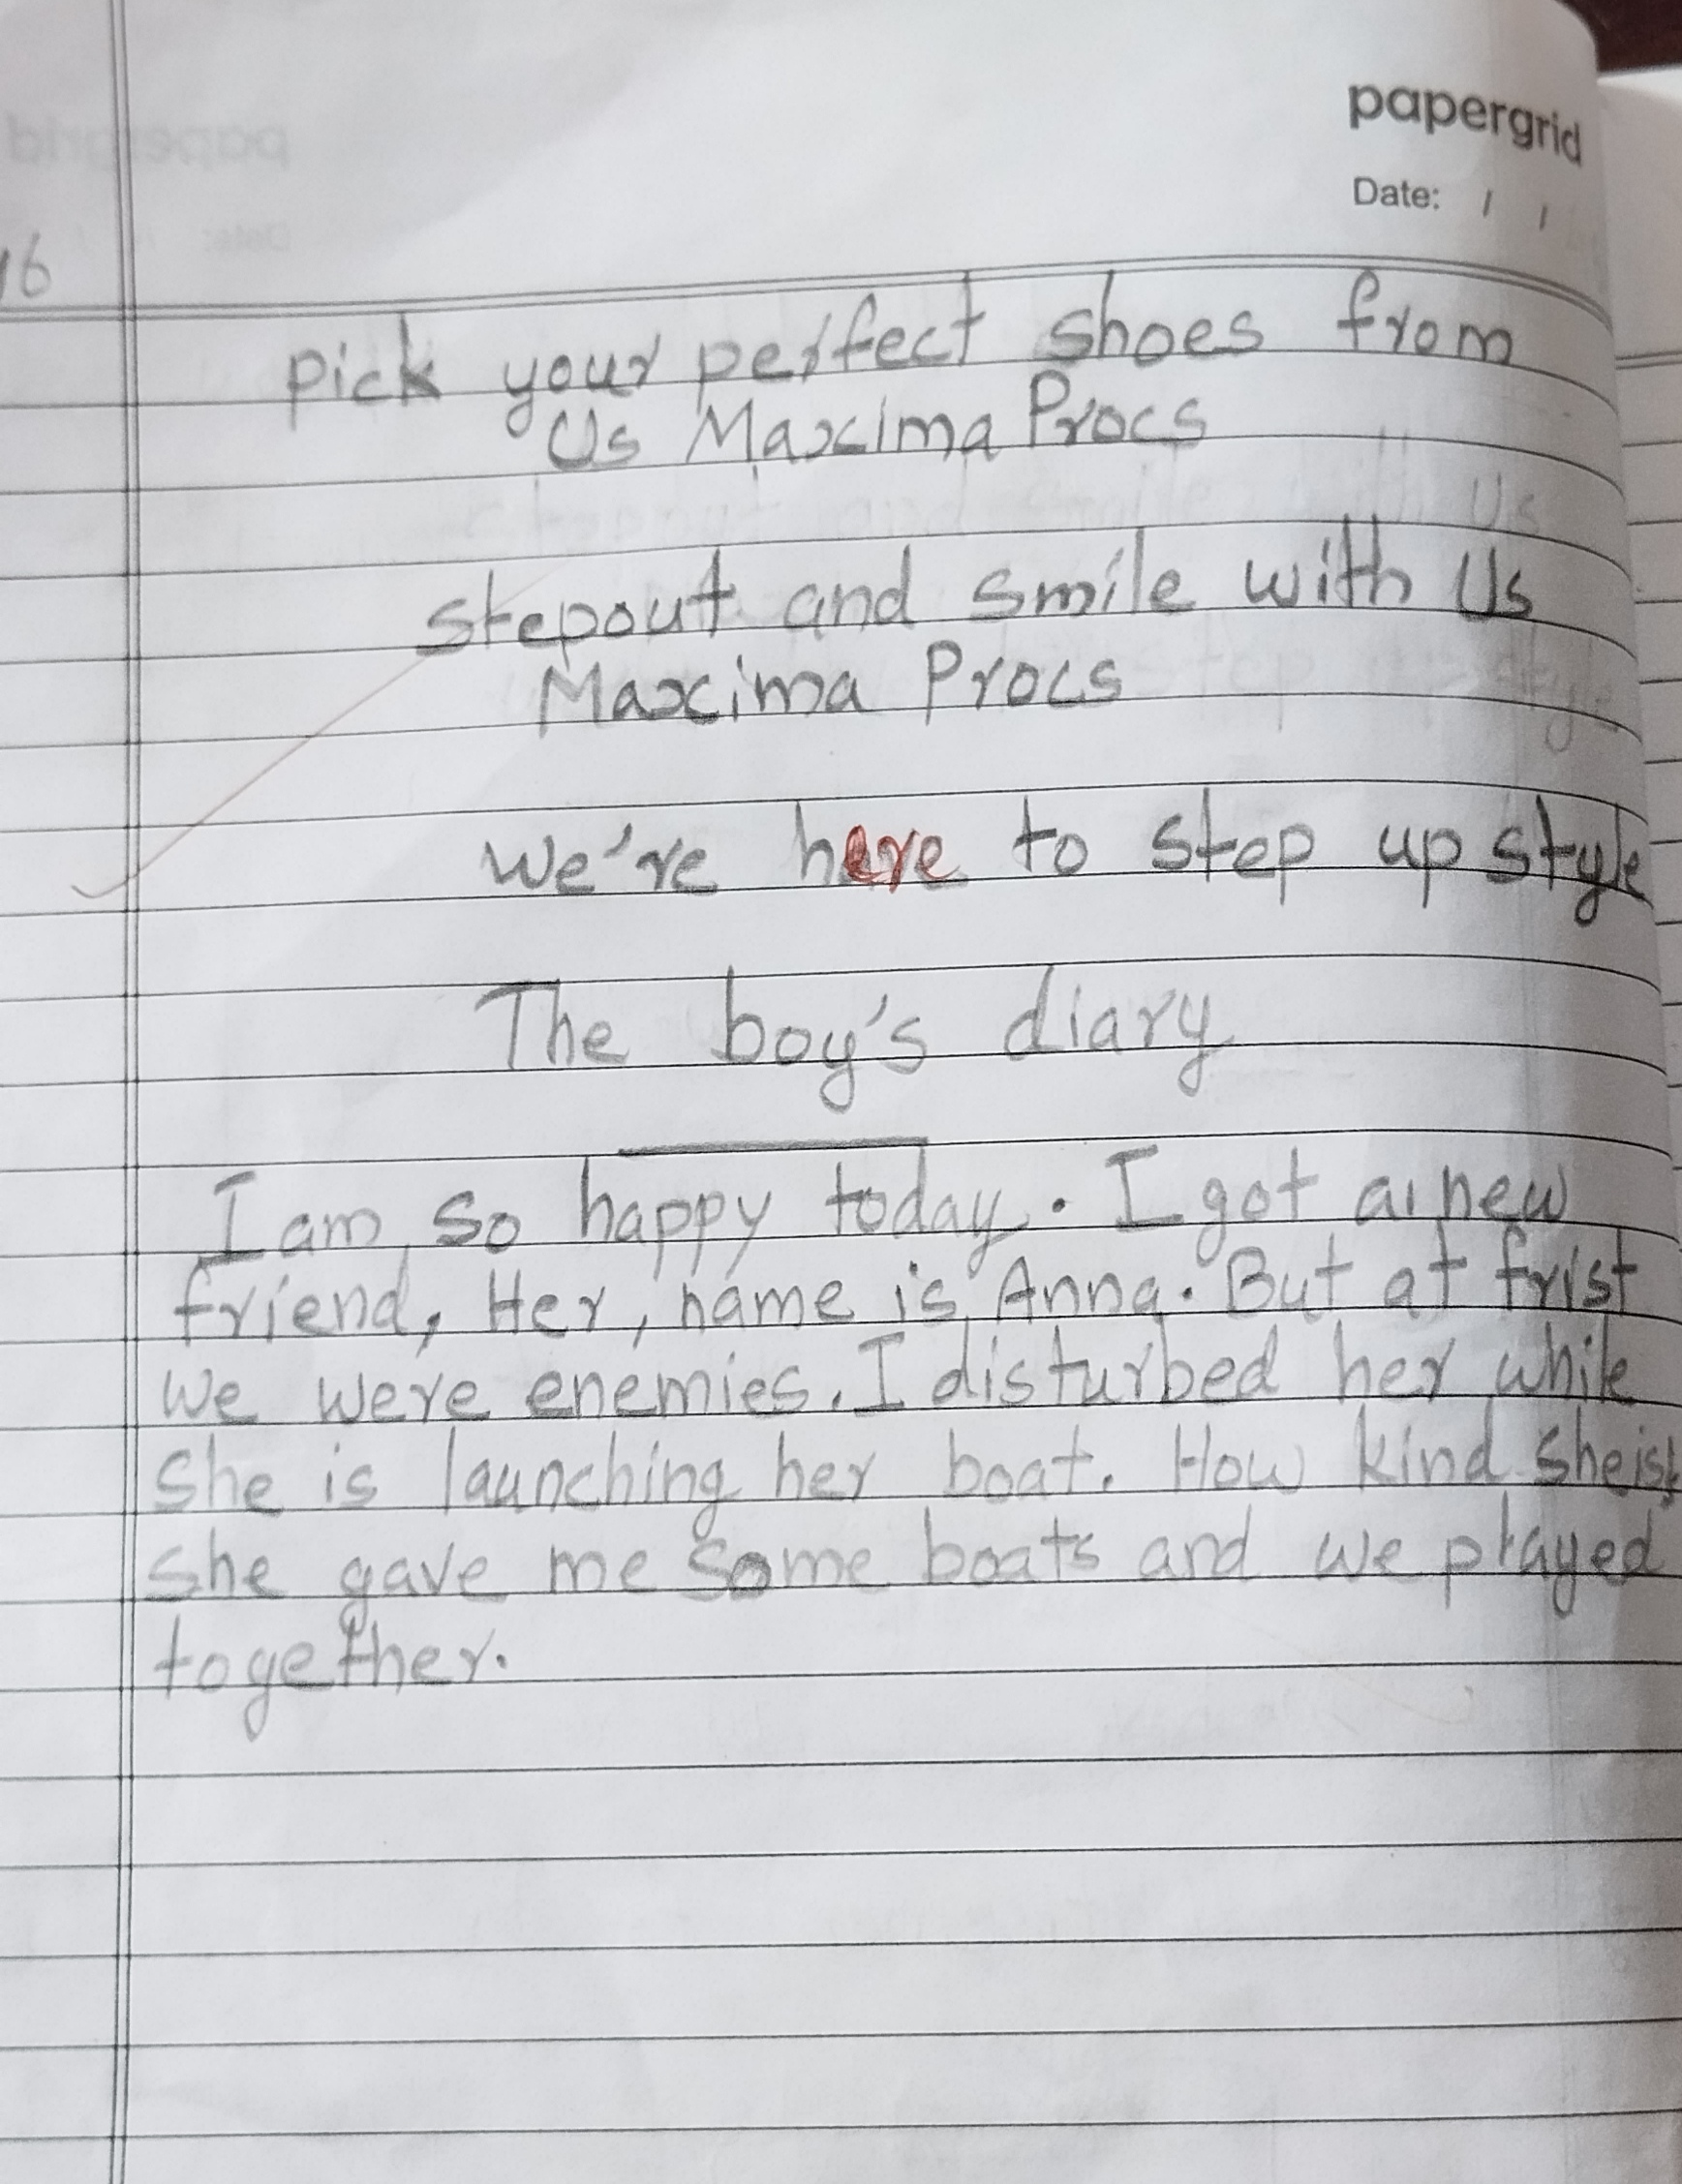 papergrid
Date: / /
16
pick your perfect shoes from
Us Maxima Procs
stepout and smile with Us
Maxima Procs
we're here to step up style
The boy's diary
I am so happy today. I got a new
friend, Her, name is Anna. But at frist
we were enemies. I disturbed her while
she is launching her boat. How kind she is
she gave me some boats and we played
together.